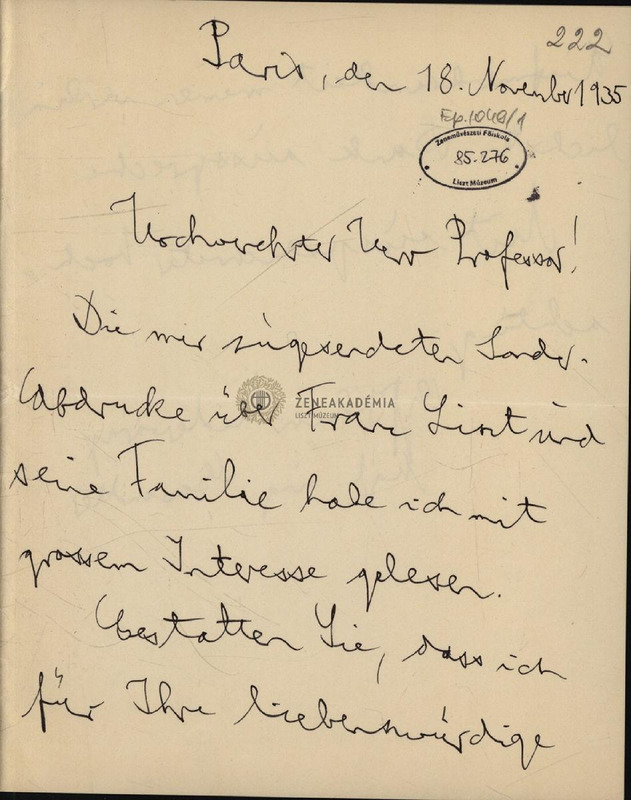 222
Paris, den 18. November 1935
Ep. 1049/1
Zeneművészeti Főiskola
85.276
Liszt Múzeum
Hochverehrter Herr Professor!
Die mir zugesendeten Sonder-
Abdrucke über Franz Liszt und
ZENEAKADÉMIA
LISZT MÚZEUM
seine Familie habe ich mit
grossem Interesse gelesen.
Gestatten Sie, dass ich
für Ihre liebenswürdige